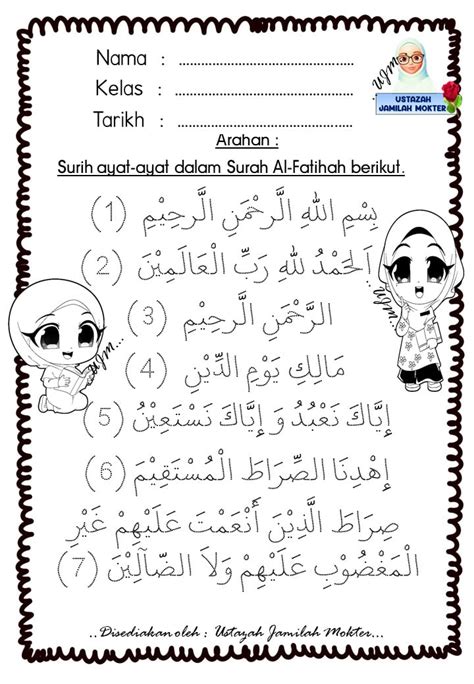 Nama : ........................................
Kelas : ........................................
Tarikh : ........................................
ujm...
USTAZAH
JAMILAH MOKTER
Arahan :
Surih ayat-ayat dalam Surah Al-Fatihah berikut.
بِسْمِ اللهِ الرَّحْمَنِ الرَّحِيْمِ (1)
اَلْحَمْدُ للهِ رَبِّ الْعَالَمِيْنَ (2)
الرَّحْمَنِ الرَّحِيْمِ (3)
مَالِكِ يَوْمِ الدِّيْنِ (4)
إِيَّاكَ نَعْبُدُ وَ إِيَّاكَ نَسْتَعِيْنُ (5)
إِهْدِنَا الصِّرَاطَ الْمُسْتَقِيْمَ (6)
صِرَاطَ الَّذِيْنَ أَنْعَمْتَ عَلَيْهِمْ غَيْرِ
الْمَغْضُوْبِ عَلَيْهِمْ وَلَا الضَّآلِّيْنَ (7)
ujm...
ujm...
..Disediakan oleh : Ustazah Jamilah Mokter...